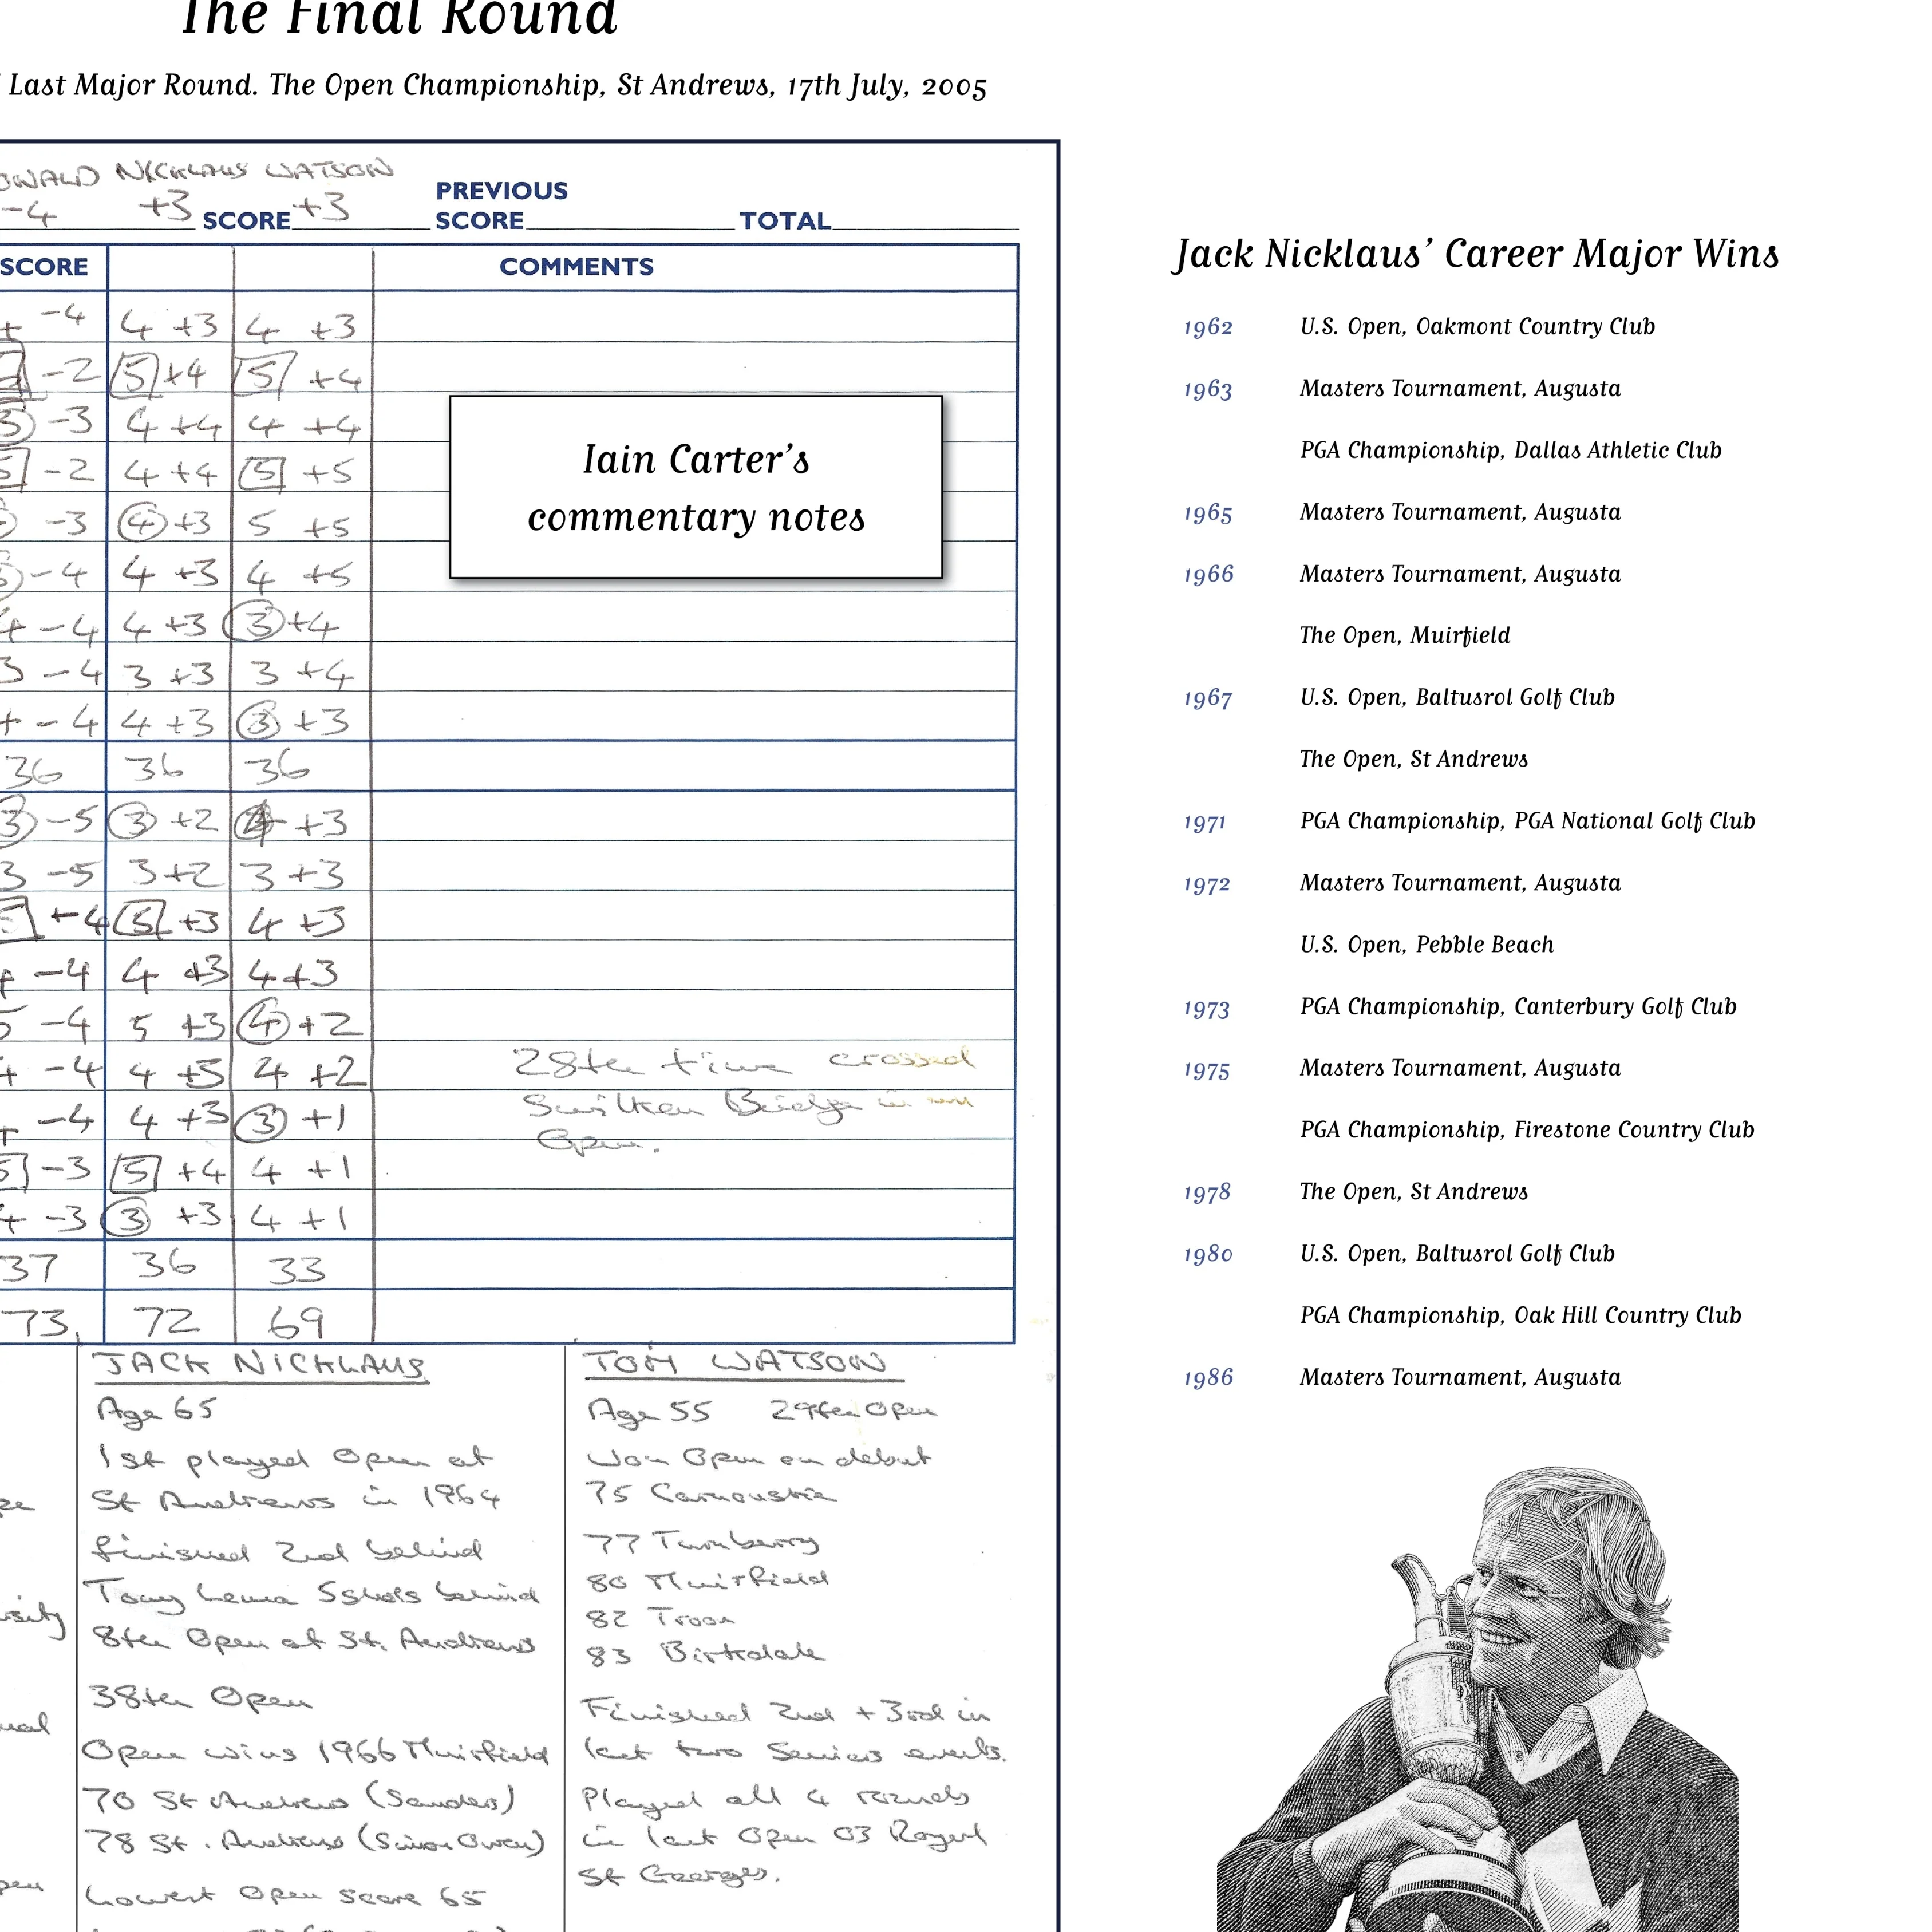 The Final Round
Last Major Round. The Open Championship, St Andrews, 17th July, 2005
NICKLAUS WATSON
-4 +3 SCORE +3 PREVIOUS SCORE TOTAL
SCORE COMMENTS
-4 4 +3 4 +3
-2 5 +4 5 +4
3 -3 4 +4 4 +4
5 -2 4 +4 5 +5
-3 4 +3 5 +5
-4 4 +3 4 +5
4 -4 4 +3 3 +4
3 -4 3 +3 3 +4
-4 4 +3 3 +3
36 36 36
3 -5 3 +2 +3
3 -5 3 +2 3 +3
+4 5 +3 4 +3
-4 4 +3 4 +3
5 -4 5 +3 4 +2
-4 4 +3 4 +2
-4 4 +3 3 +1
5 -3 5 +4 4 +1
4 -3 3 +3 4 +1
37 36 33
73 72 69
Iain Carter's
commentary notes
28th time crossed
Swilken Bridge in an
Open.
JACK NICKLAUS
Age 65
1st played Open at
St Andrews in 1964
finished 2nd behind
Tony Lema 5 shots behind
8th Open at St. Andrews
38th Open
Open wins 1966 Muirfield
70 St Andrews (Sanders)
78 St. Andrews (Simon Owen)
Lowest Open score 65
TOM WATSON
Age 55 29th Open
Won Open on debut
75 Carnoustie
77 Turnberry
80 Muirfield
82 Troon
83 Birkdale
Finished 2nd + 3rd in
last two Seniors events.
Played all 4 rounds
in last Open 03 Royal
St Georges.
Jack Nicklaus' Career Major Wins
1962 U.S. Open, Oakmont Country Club
1963 Masters Tournament, Augusta
PGA Championship, Dallas Athletic Club
1965 Masters Tournament, Augusta
1966 Masters Tournament, Augusta
The Open, Muirfield
1967 U.S. Open, Baltusrol Golf Club
The Open, St Andrews
1971 PGA Championship, PGA National Golf Club
1972 Masters Tournament, Augusta
U.S. Open, Pebble Beach
1973 PGA Championship, Canterbury Golf Club
1975 Masters Tournament, Augusta
PGA Championship, Firestone Country Club
1978 The Open, St Andrews
1980 U.S. Open, Baltusrol Golf Club
PGA Championship, Oak Hill Country Club
1986 Masters Tournament, Augusta